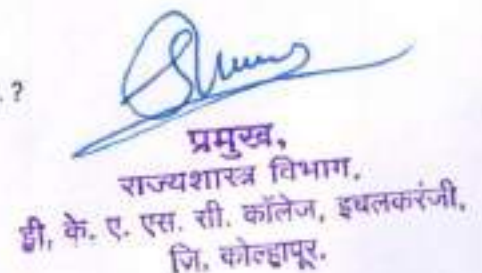 ?
प्रमुख,
राज्यशास्त्र विभाग,
डी. के. ए. एस. सी. कॉलेज, इचलकरंजी,
जि. कोल्हापूर.